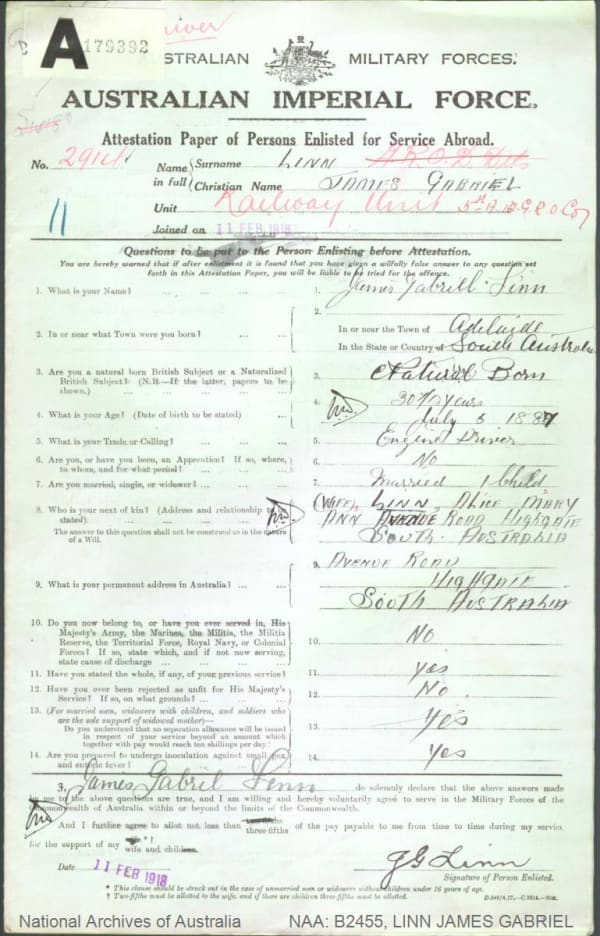 A 179392
Driver
AUSTRALIAN MILITARY FORCES.
AUSTRALIAN IMPERIAL FORCE,
Attestation Paper of Persons Enlisted for Service Abroad.
No. 2914
Name in full
Surname LINN
Christian Name JAMES GABRIEL
Unit Railway Unit 5th A B G R O Coy
Joined on 11 FEB 1918
11
Questions to be put to the Person Enlisting before Attestation.
You are hereby warned that if after enlistment it is found that you have given a wilfully false answer to any question set
forth in this Attestation Paper, you will be liable to be tried for the offence.
1. What is your Name? ... ... ... 1. James Gabriel Linn
2. In or near what Town were you born? ... ... 2. In or near the Town of Adelaide
In the State or Country of South Australia
3. Are you a natural born British Subject or a Naturalized
British Subject? (N.B.—If the latter, papers to be
shown.) ... ... ... 3. Natural Born
4. What is your Age? (Date of birth to be stated) ... 4. 30 7/12 years
July 5 1887
5. What is your Trade or Calling? ... ... 5. Engine Driver
6. Are you, or have you been, an Apprentice? If so, where,
to whom, and for what period? ... ... ... 6. No
7. Are you married, single, or widower? ... ... 7. Married 1 Child
8. Who is your next of kin? (Address and relationship to be
stated) ... ... ...
The answer to this question shall not be construed as in the nature
of a Will.
(Wife) LINN, ALICE MARY
ANN AVENUE ROAD HIGHGATE
SOUTH. AUSTRALIA
9. What is your permanent address in Australia? ... ... 9. AVENUE ROAD
HIGHGATE
SOUTH AUSTRALIA
10. Do you now belong to, or have you ever served in, His
Majesty's Army, the Marines, the Militia, the Militia
Reserve, the Territorial Force, Royal Navy, or Colonial
Forces? If so, state which, and if not now serving,
state cause of discharge ... ... ... ... 10. No
11. Have you stated the whole, if any, of your previous service? 11. yes
12. Have you ever been rejected as unfit for His Majesty's
Service? If so, on what grounds? ... ... 12. No.
13. (For married men, widowers with children, and soldiers who
are the sole support of widowed mother)—
Do you understand that no separation allowance will be issued
in respect of your service beyond an amount which
together with pay would reach ten shillings per day? 13. Yes
14. Are you prepared to undergo inoculation against small pox
and enteric fever? ... ... 14. Yes
James Gabril Linn do solemnly declare that the above answers made
by me to the above questions are true, and I am willing and hereby voluntarily agree to serve in the Military Forces of the
Commonwealth of Australia within or beyond the limits of the Commonwealth.
And I further agree to allot not less than three-fifths of the pay payable to me from time to time during my service
for the support of my wife and children.
Date 11 FEB 1918
J G Linn
Signature of Person Enlisted.
* This clause should be struck out in the case of unmarried men or widowers without children under 16 years of age.
† Two-fifths must be allotted to the wife, and if there are children three-fifths must be allotted.
National Archives of Australia
NAA: B2455, LINN JAMES GABRIEL